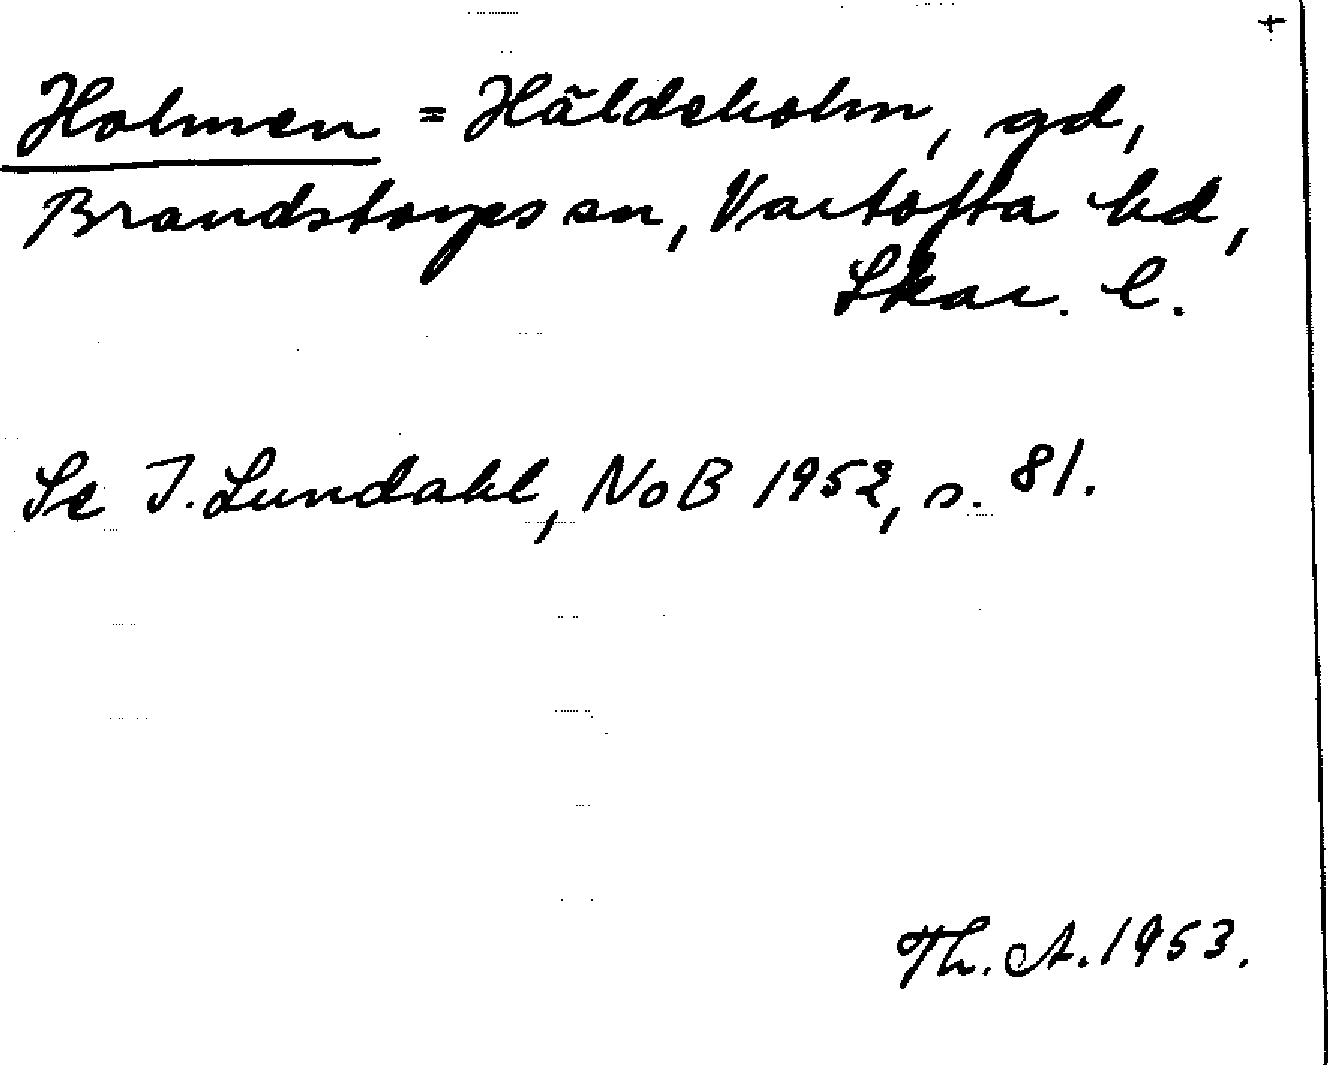 +
Holmen = Häldeholm, gd,
Brandstorps sn, Vartofta hd,
Skar. l.
Se I. Lundahl, NoB 1952, s. 81.
Th. A. 1953.